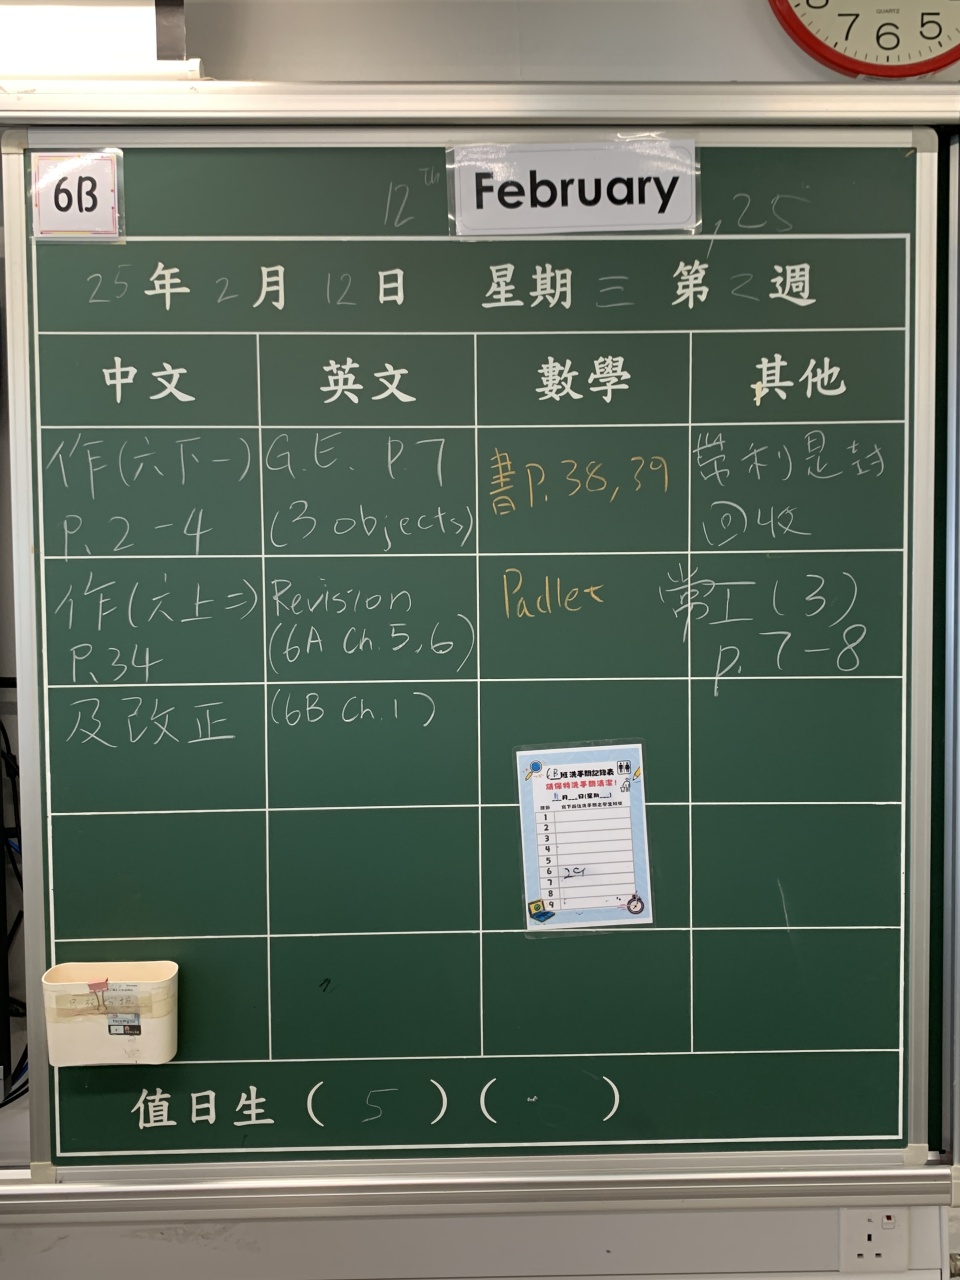 QUARTZ
7 6 5
6B
12th February, 25
25年2月12日 星期三 第2週
中文 英文 數學 其他
作(六下一)
P.2-4
G.E. P.7
(3 objects)
書P.38,39
利是封
回收
作(六上二)
P.34
Revision
(6A Ch.5,6)
Padlet
常工(3)
P.7-8
及改正
(6B Ch.1)
6B班洗手間記錄表
請保持洗手間清潔!
月 日(星期 )
1
2
3
4
5
6
7
8
9
值日生(5)( )